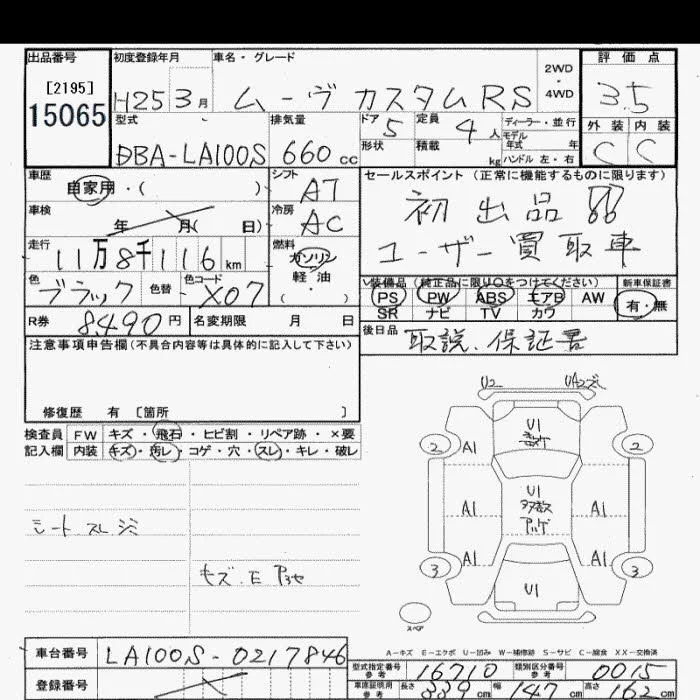 出品番号 初度登録年月 車名・グレード 評価点
[2195] 15065 H25 3月 ムーヴ カスタムRS 2WD・4WD 3.5
型式 排気量 ドア 5 定員 4人 ディーラー・並行 外装 内装
DBA-LA100S 660cc 形状 積載 kg モデル年式 年 ハンドル 左・右 C C
車歴 自家用・( ) シフト AT セールスポイント (正常に機能するものに限ります)
車検 年 月( 日) 冷房 AC 初出品
走行 11万8千116km 燃料 ガソリン 軽・油 ・( ) ユーザー買取車
色 ブラック 色替 色コード X07 装備品 (純正品に限り○をつけてください) 新車保証書
PS PW ABS エアB AW 有・無
SR ナビ TV カワ
R券 8,490円 名変期限 月 日 後日品 取説、保証書
注意事項申告欄(不具合内容等は具体的に記入して下さい)
修復歴 有 [箇所 ]
検査員 FW キズ・飛石・ヒビ割・リペア跡・×要
記入欄 内装 キズ・汚レ・コゲ・穴・スレ・キレ・破レ
シート スレ シミ
キズ・E
U2
2 A1 U1 A1 2
A1 U1 A1
3 A1 U1 A1 3
スペア
A-キズ E-エクボ U-凹み W-補修跡 S-サビ C-腐食 XX-交換済
車台番号 LA100S-0217846
型式指定番号 参考 16710 類別区分番号 参考 0015
登録番号 車庫証明用 参考 長さ 339cm 幅 147cm 高さ 162cm